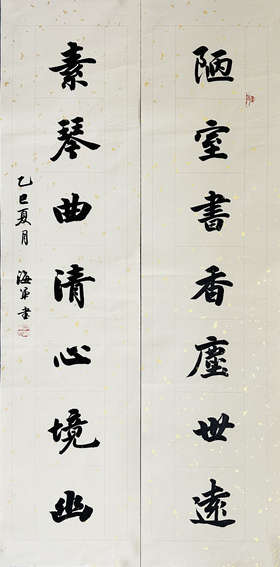 陋室書香塵世遠
素琴曲清心境幽
乙巳夏月
海軍書